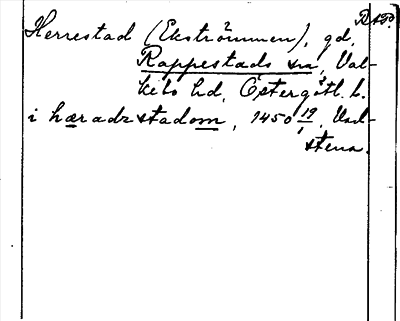 R AP.
Herrestad (Ekströmmen), gd,
Rappestads sn, Val-
kebo hd, Östergötl. l.
i hæradzstadom, 1450 19/1, Vad-
stena.